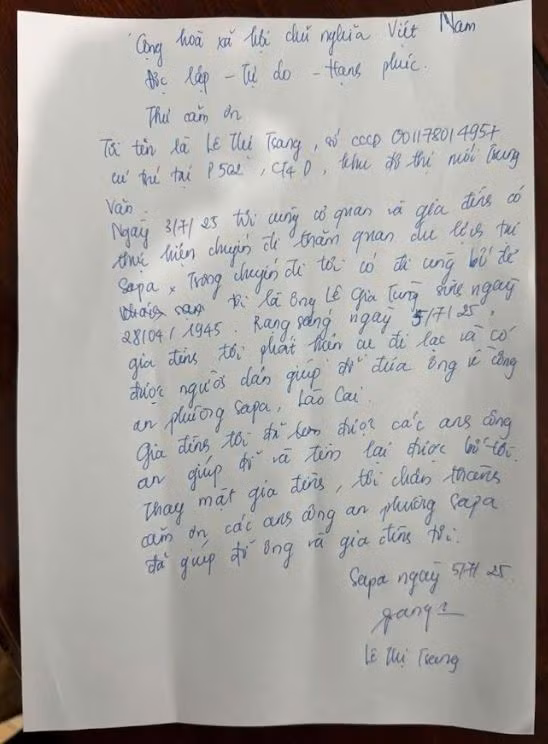 Cộng hoà xã hội chủ nghĩa Việt Nam
Độc lập - Tự do - Hạnh phúc.
Thư cảm ơn
Tôi tên là Lê Thị Trang, số CCCD 001178014957
cư trú tại P502, CT4D, khu đô thị mới Trung
Văn.
Ngày 3/7/25 tôi cùng cơ quan và gia đình có
thực hiện chuyến đi thăm quan du lịch tại
Sapa. Trong chuyến đi tôi có đi cùng bố đẻ
tôi là ông Lê Gia Tùng sinh ngày
28/04/1945. Rạng sáng ngày 5/7/25,
gia đình tôi phát hiện cụ đi lạc và có
được người dân giúp đỡ đưa ông về công
an phường Sapa, Lào Cai.
Gia đình tôi đã được các anh công
an giúp đỡ và tìm lại được bố tôi.
Thay mặt gia đình, tôi chân thành
cảm ơn các anh công an phường Sapa
đã giúp đỡ ông và gia đình tôi.
Sapa ngày 5/7/25
Lê Thị Trang